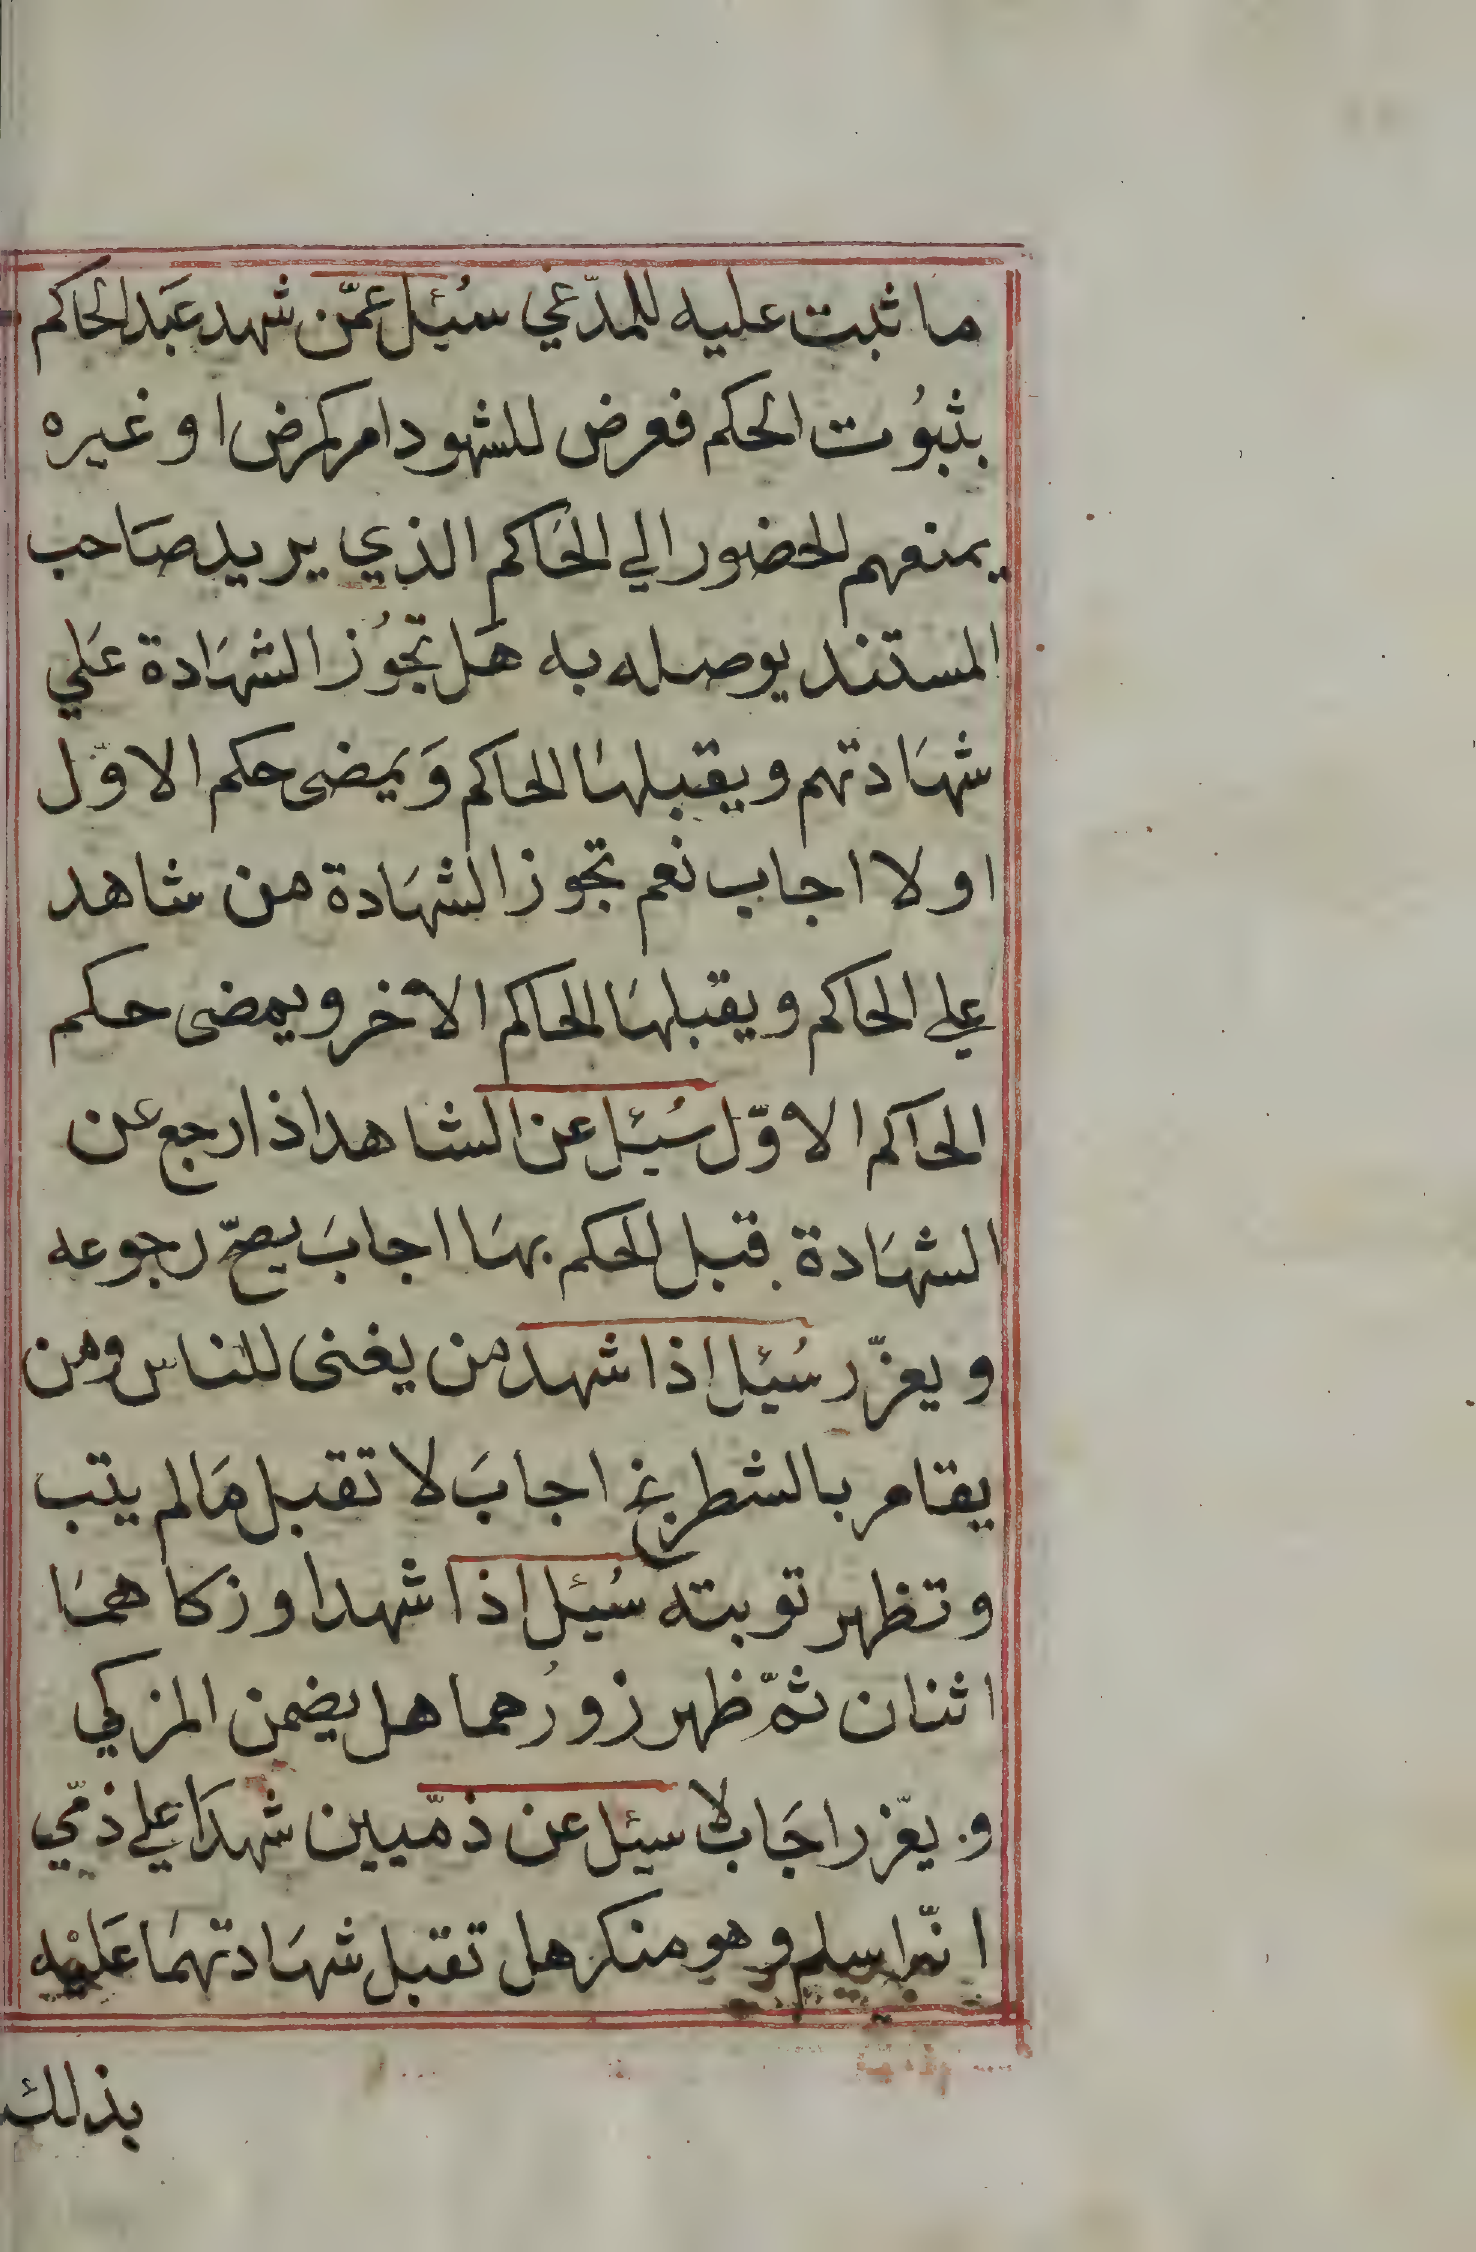 ما ثبت عليه للمدّعي سُئل عمّن شهد عَبد الحاكم
بثبُوت الحكم فعرض للشهود امر كمرض او غيره
يمنعهم الحضور الي الحَاكم الذي يريد صَاحب
المستند يوصله به هَل تجوُز الشهَادة عَلي
شهَادتهم ويقبلهَا الحاكم وَيمضى حكم الاوّل
اولا اجاب نعم تجوز الشهَادة من شاهد
علي الحاكم ويقبلهَا الحاكم الاخر ويمضى حكم
الحَاكم الاوّل سُئل عن الشاهد اذا رجع عن
الشهَادة قبل الحكم بهَا اجابَ يصحّ رجوعه
ويعزّر سُئل اذا شهد من يغنى للناس ومن
يقامر بالشطرنج اجابَ لا تقبل مَا لم يتب
وتظهر توبته سُئل اذا شهدا وزكاهمَا
اثنان ثمّ ظهر زورُهما هل يضمن المزكي
ويعزّر اجَاب لا سيئل عن ذمّيين شهدَا علي ذمّي
انّه اسلم وهو منكر هل تقبل شهَادتهمَا عَليْه
بذلك